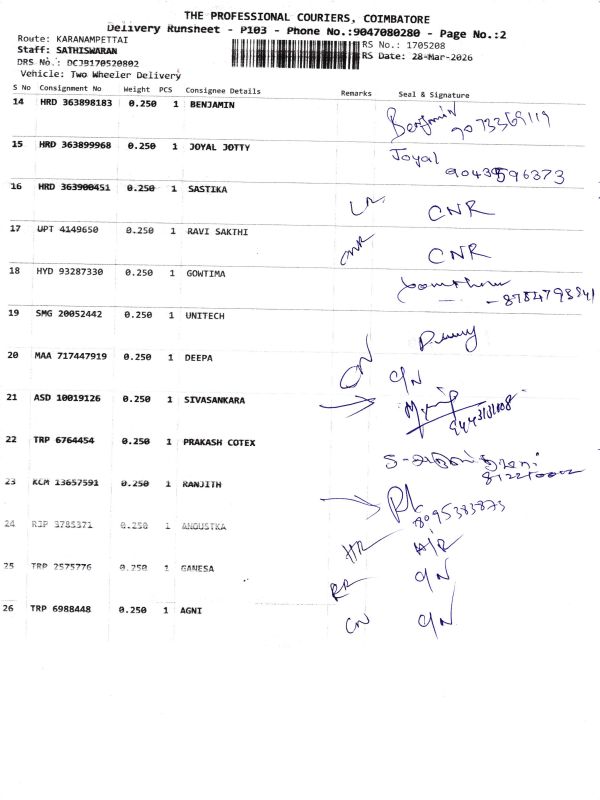 THE PROFESSIONAL COURIERS, COIMBATORE
Delivery Runsheet - P103 - Phone No.:9047080280 - Page No.:2
Route: KARANAMPETTAI
RS No.: 1705208
Staff: SATHISWARAN
RS Date: 28-Mar-2026
DRS No.: DCJB170520802
Vehicle: Two Wheeler Delivery
S No Consignment No Weight PCS Consignee Details Remarks Seal & Signature
14 HRD 363898183 0.250 1 BENJAMIN Benjamin
9073369119
15 HRD 363899968 0.250 1 JOYAL JOTTY Joyal
16 HRD 363900451 0.250 1 SASTIKA CNR
17 UPT 4149650 0.250 1 RAVI SAKTHI CNR
18 HYD 93287330 0.250 1 GOWTIMA
19 SMG 20052442 0.250 1 UNITECH
20 MAA 717447919 0.250 1 DEEPA CN C/N
21 ASD 10019126 0.250 1 SIVASANKARA
22 TRP 6764454 0.250 1 PRAKASH COTEX
23 KCM 13657591 0.250 1 RANJITH
8095383873
24 RJP 3785371 0.250 1 ANGUSTKA
25 TRP 2575776 0.250 1 GANESA C/N
26 TRP 6988448 0.250 1 AGNI CN C/N